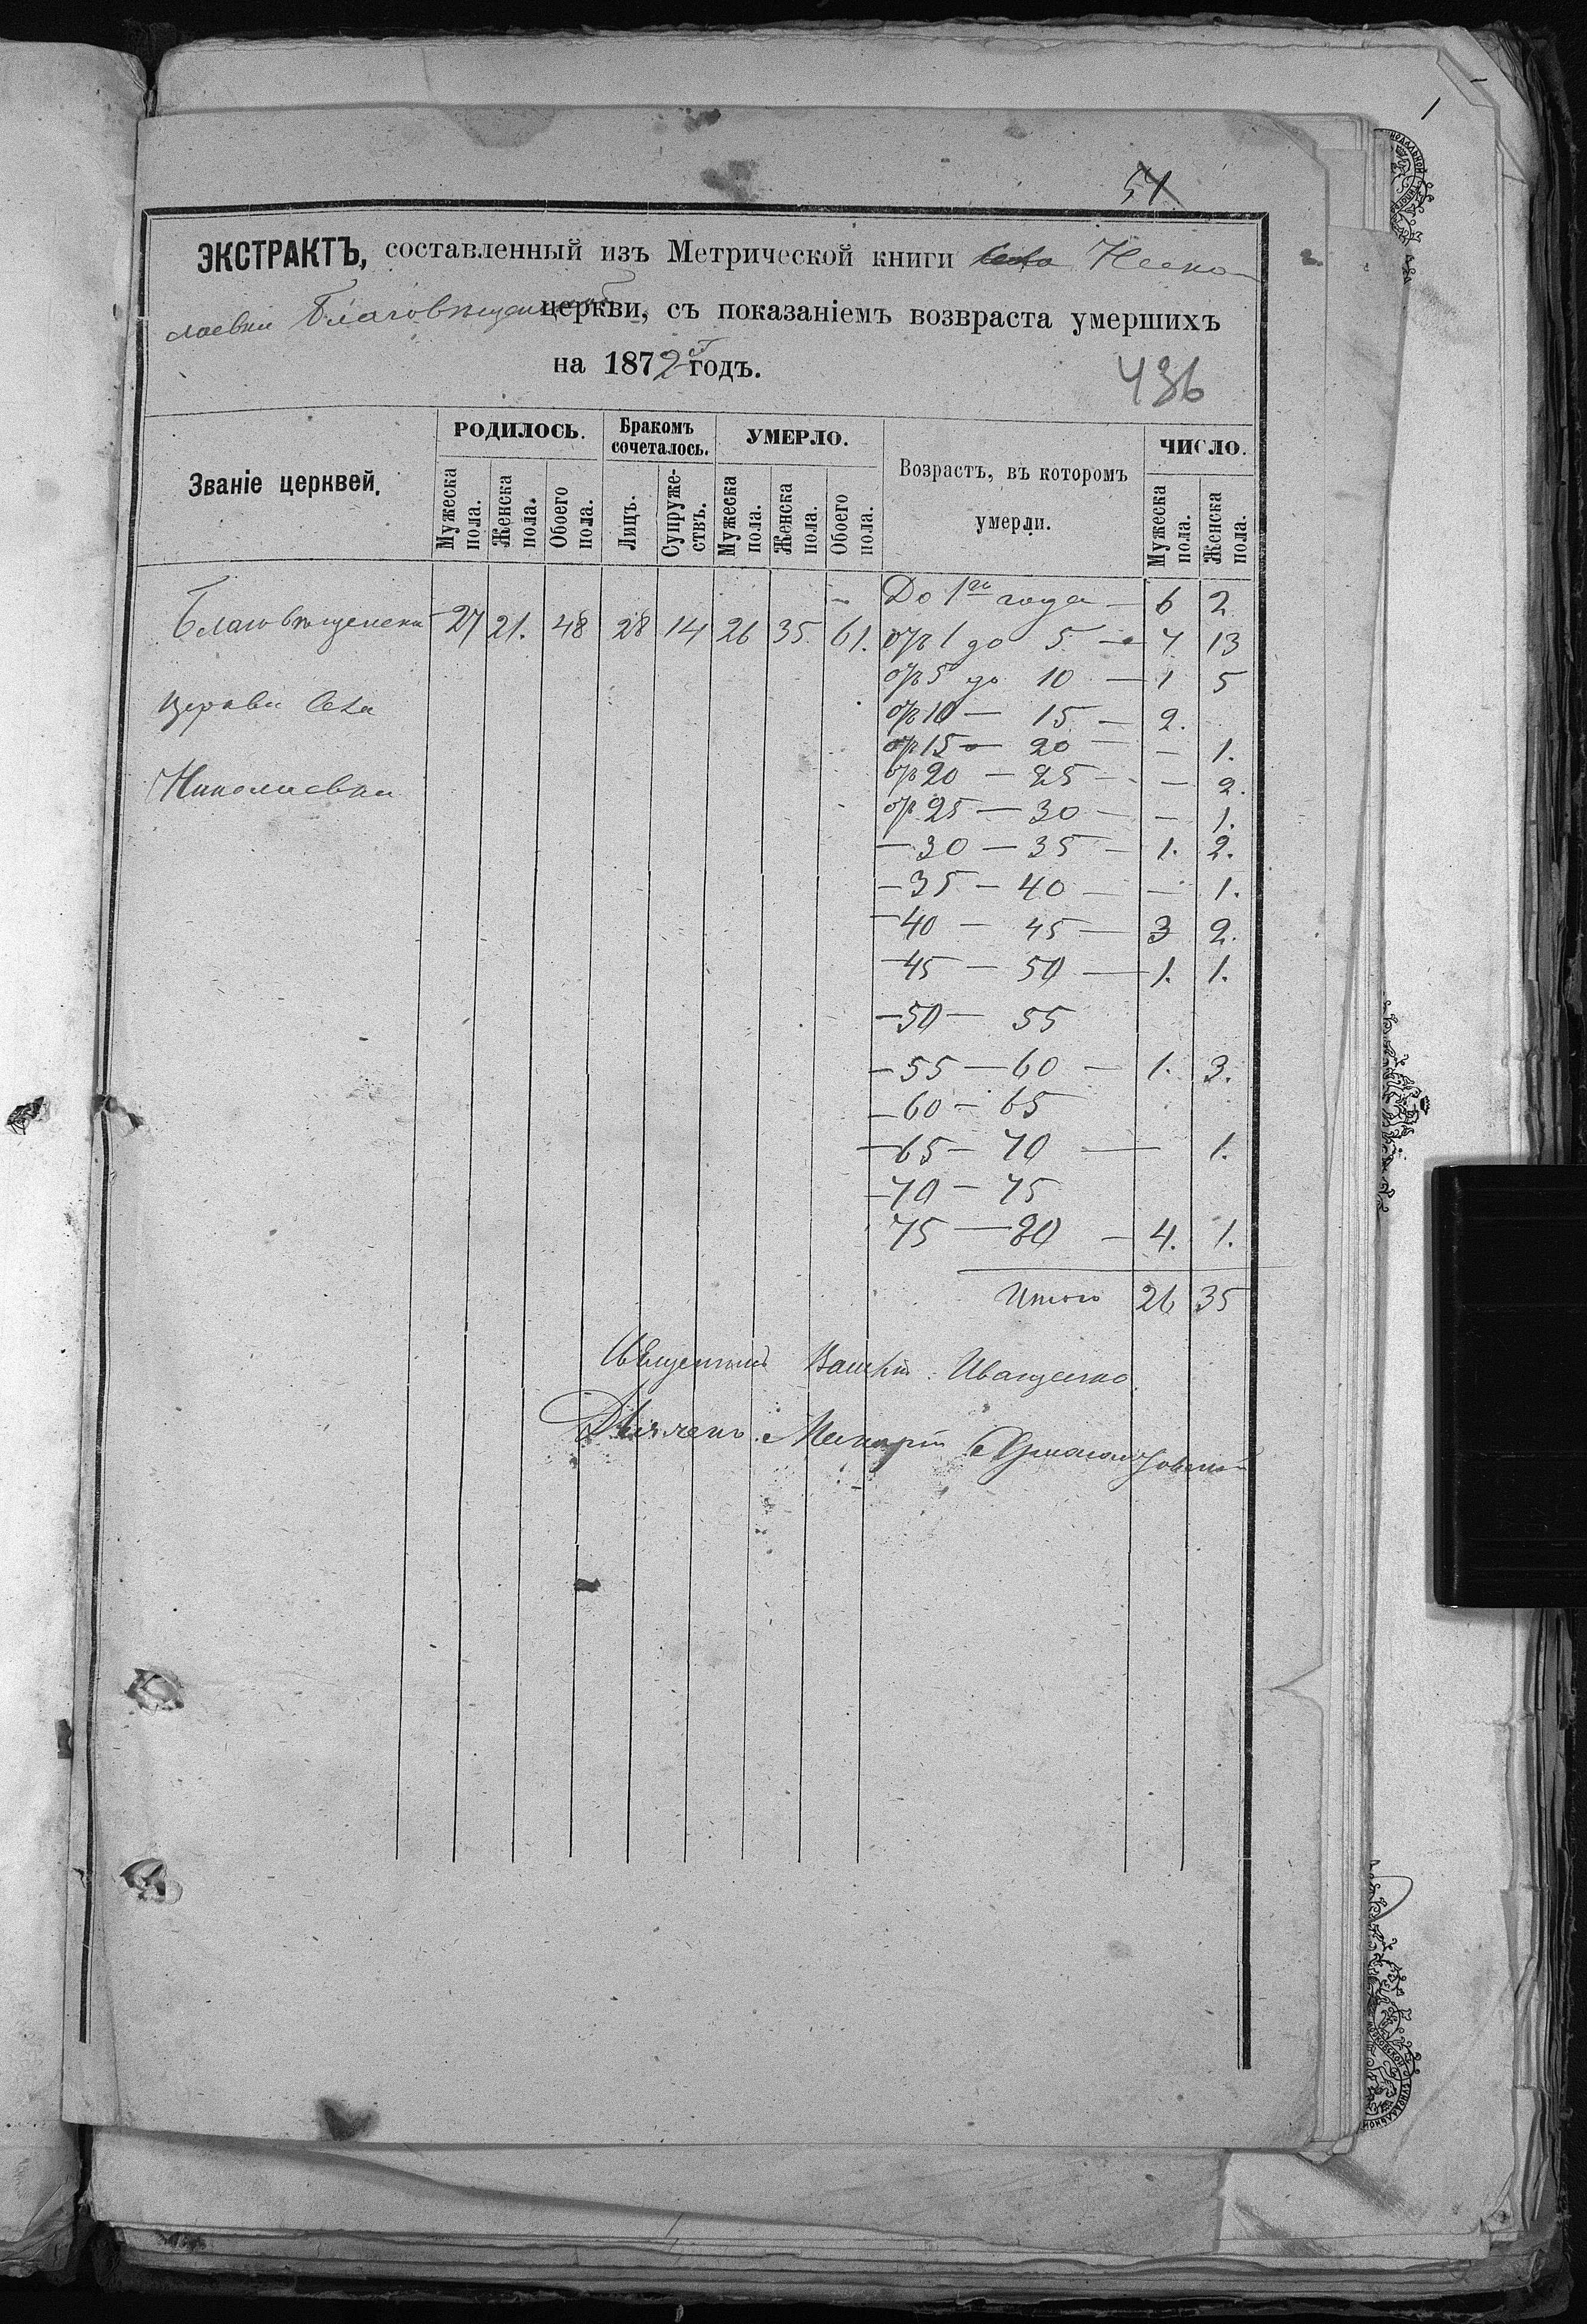 1
51
ЭКСТРАКТЪ, составленный изъ Метрической книги села Нико-
лаевки Благовѣщенской церкви, съ показаніемъ возвраста умершихъ
на 1872й годъ.
436
Званіе церквей.
РОДИЛОСЬ.
Мужеска пола.
Женска пола.
Обоего пола.
Бракомъ сочеталось.
Лицъ.
Супружествъ.
УМЕРЛО.
Мужеска пола.
Женска пола.
Обоего пола.
Возрастъ, въ которомъ умерли.
ЧИСЛО.
Мужеска пола.
Женска пола.
До 1го года — 6 2
Благовѣщенской 27 21. 48 28 14 26 35 61. отъ 1 до 5 — 7 13
отъ 5 до 10 — 1 5
церкви Села
отъ 10 — 15 — 2.
отъ 15 — 20 — — 1.
Николаевки
отъ 20 — 25 — — 2.
от 25 — 30 — — 1.
— 30 — 35 — 1. 2.
— 35 — 40 — — 1.
— 40 — 45 — 3 2.
— 45 — 50 — 1. 1.
— 50 — 55
— 55 — 60 — 1. 3.
— 60 — 65
— 65 — 70 — 1.
— 70 — 75
75 — 80 — 4. 1.
Итого 26 35
Священник Иващенко
Дьячекъ